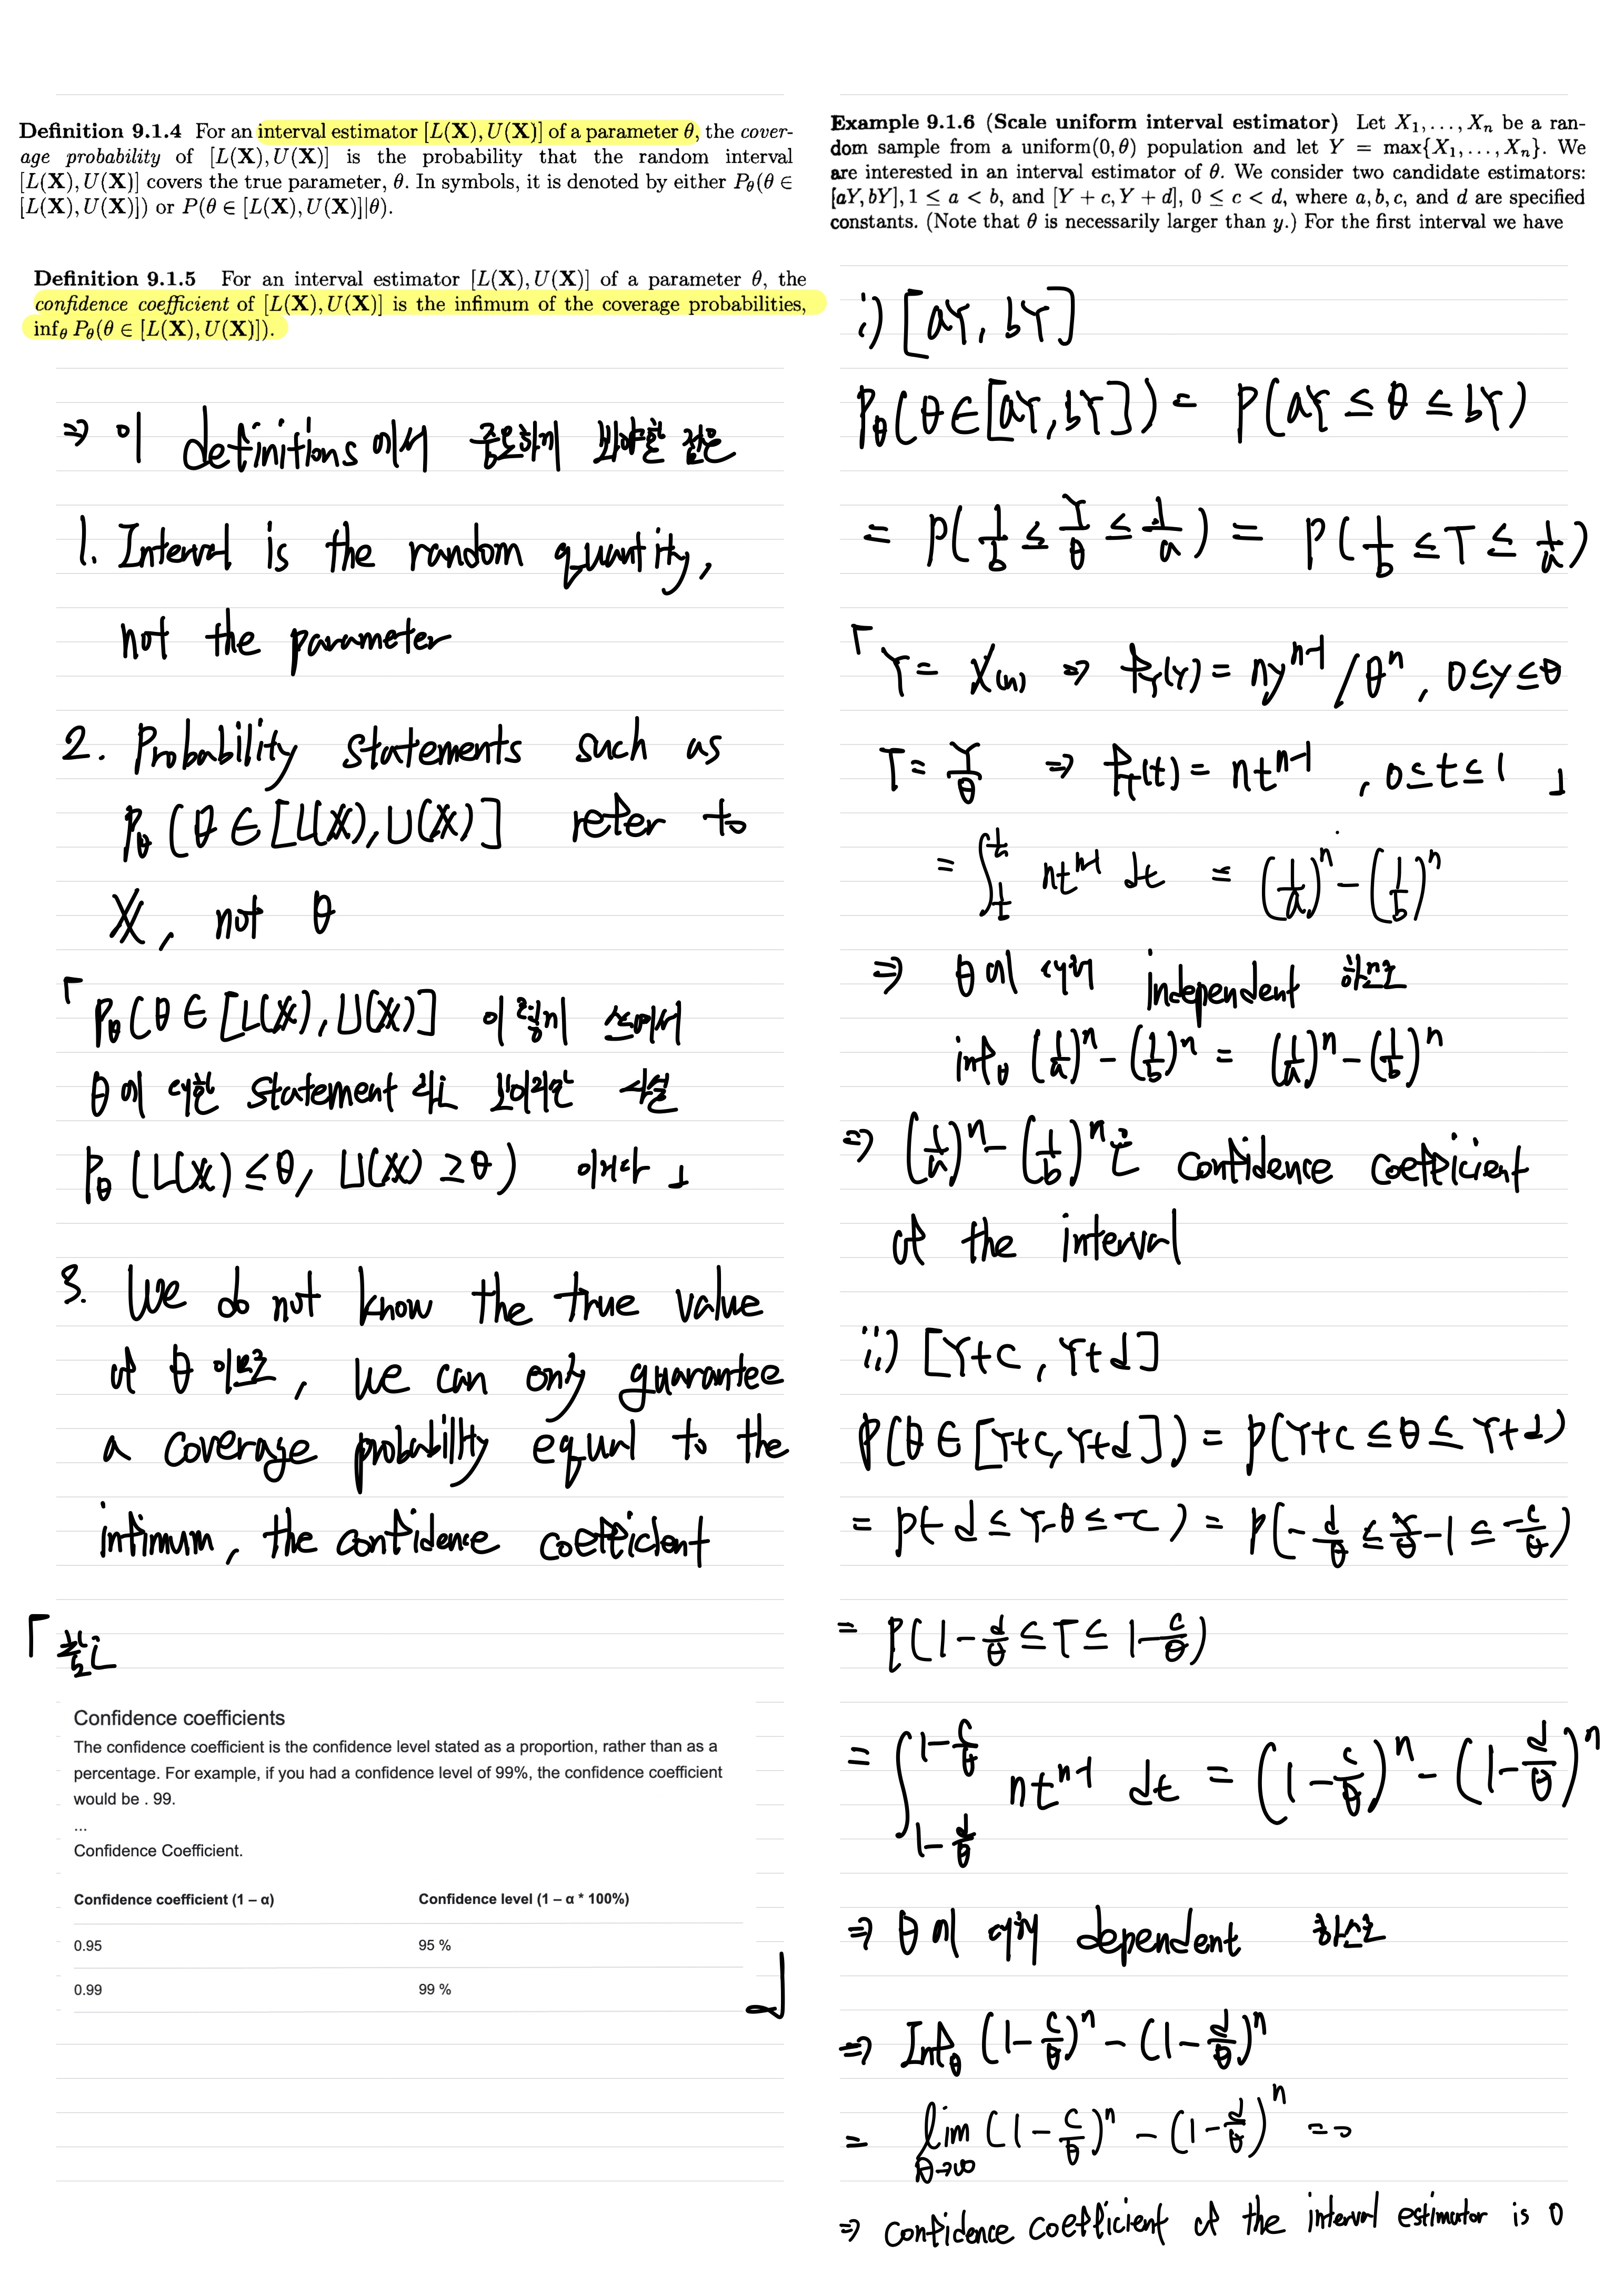 Definition 9.1.4 For an interval estimator [L(X), U(X)] of a parameter θ, the cover-
age probability of [L(X), U(X)] is the probability that the random interval
[L(X), U(X)] covers the true parameter, θ. In symbols, it is denoted by either P_θ(θ ∈
[L(X), U(X)]) or P(θ ∈ [L(X), U(X)]|θ).
Definition 9.1.5 For an interval estimator [L(X), U(X)] of a parameter θ, the
confidence coefficient of [L(X), U(X)] is the infimum of the coverage probabilities,
inf_θ P_θ(θ ∈ [L(X), U(X)]).
⇒ 이 definitions 에서 중요하게 봐야할 점은
1. Interval is the random quantity,
not the parameter
2. Probability statements such as
P_θ (θ ∈ [L(X), U(X)] refer to
X, not θ
「 P_θ (θ ∈ [L(X), U(X)] 이 식에서
θ 에 대한 statement 라고 보이지만 사실
P_θ (L(X) ≤ θ, U(X) ≥ θ) 이거다 」
3. We do not know the true value
of θ 이므로, we can only guarantee
a coverage probability equal to the
infimum, the confidence coefficient
「 참고
Confidence coefficients
The confidence coefficient is the confidence level stated as a proportion, rather than as a
percentage. For example, if you had a confidence level of 99%, the confidence coefficient
would be . 99.
...
Confidence Coefficient.
Confidence coefficient (1 – α) Confidence level (1 – α * 100%)
0.95 95 %
0.99 99 %
」
Example 9.1.6 (Scale uniform interval estimator) Let X₁, . . . , Xₙ be a ran-
dom sample from a uniform(0, θ) population and let Y = max{X₁, . . . , Xₙ}. We
are interested in an interval estimator of θ. We consider two candidate estimators:
[aY, bY], 1 ≤ a < b, and [Y + c, Y + d], 0 ≤ c < d, where a, b, c, and d are specified
constants. (Note that θ is necessarily larger than y.) For the first interval we have
i) [aY, bY]
P_θ (θ ∈ [aY, bY]) = P(aY ≤ θ ≤ bY)
= P(1/b ≤ Y/θ ≤ 1/a) = P(1/b ≤ T ≤ 1/a)
「 Y = X₍ₙ₎ ⇒ f_Y(Y) = ny^(n-1) / θ^n, 0 ≤ y ≤ θ
T = Y/θ ⇒ f_T(t) = nt^(n-1), 0 ≤ t ≤ 1 」
= ∫_(1/b)^(1/a) nt^(n-1) dt = (1/a)^n - (1/b)^n
⇒ θ 에 대해 independent 하므로
inf_θ (1/a)^n - (1/b)^n = (1/a)^n - (1/b)^n
⇒ (1/a)^n - (1/b)^n 은 confidence coefficient
of the interval
ii) [Y+c, Y+d]
P(θ ∈ [Y+c, Y+d]) = P(Y+c ≤ θ ≤ Y+d)
= P(-d ≤ Y-θ ≤ -c) = P(-d/θ ≤ Y/θ - 1 ≤ -c/θ)
= P(1 - d/θ ≤ T ≤ 1 - c/θ)
= ∫_(1-d/θ)^(1-c/θ) nt^(n-1) dt = (1 - c/θ)^n - (1 - d/θ)^n
⇒ θ 에 대해 dependent 하므로
⇒ Inf_θ (1 - c/θ)^n - (1 - d/θ)^n
= lim_(θ→∞) (1 - c/θ)^n - (1 - d/θ)^n = 0
⇒ confidence coefficient of the interval estimator is 0